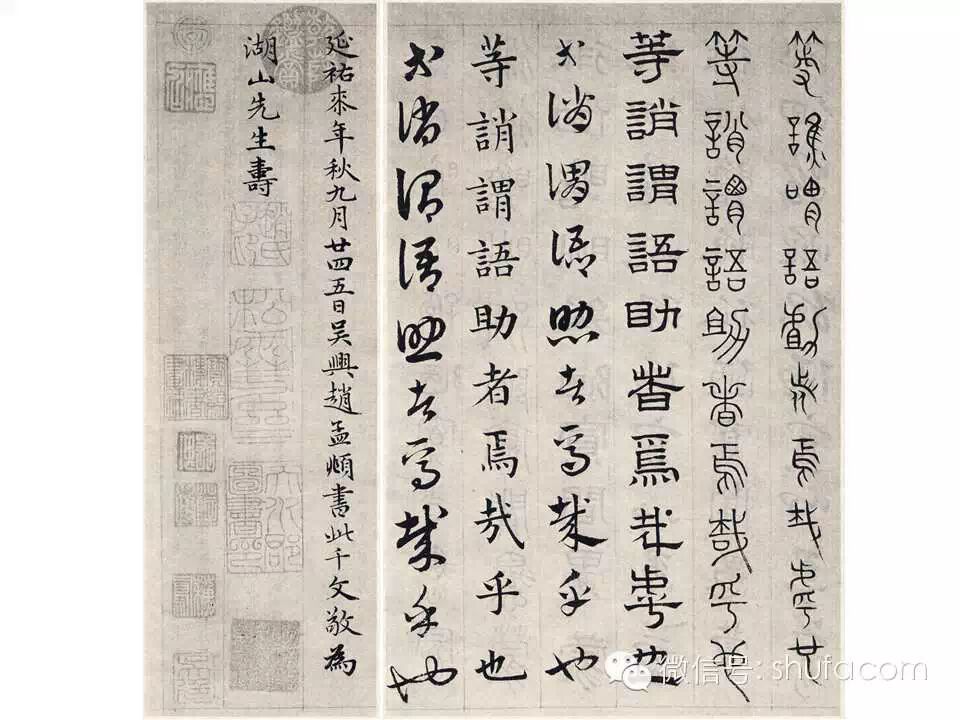 等誚謂語助者焉哉乎也
等誚謂語助者焉哉乎也
等誚謂語助者焉哉乎也
等誚謂語助者焉哉乎也
等誚謂語助者焉哉乎也
等誚謂語助者焉哉乎也
延祐來年秋九月廿四五日吴興趙孟頫書此千文敬為
湖山先生壽
趙氏子昂
微信号: shufacom